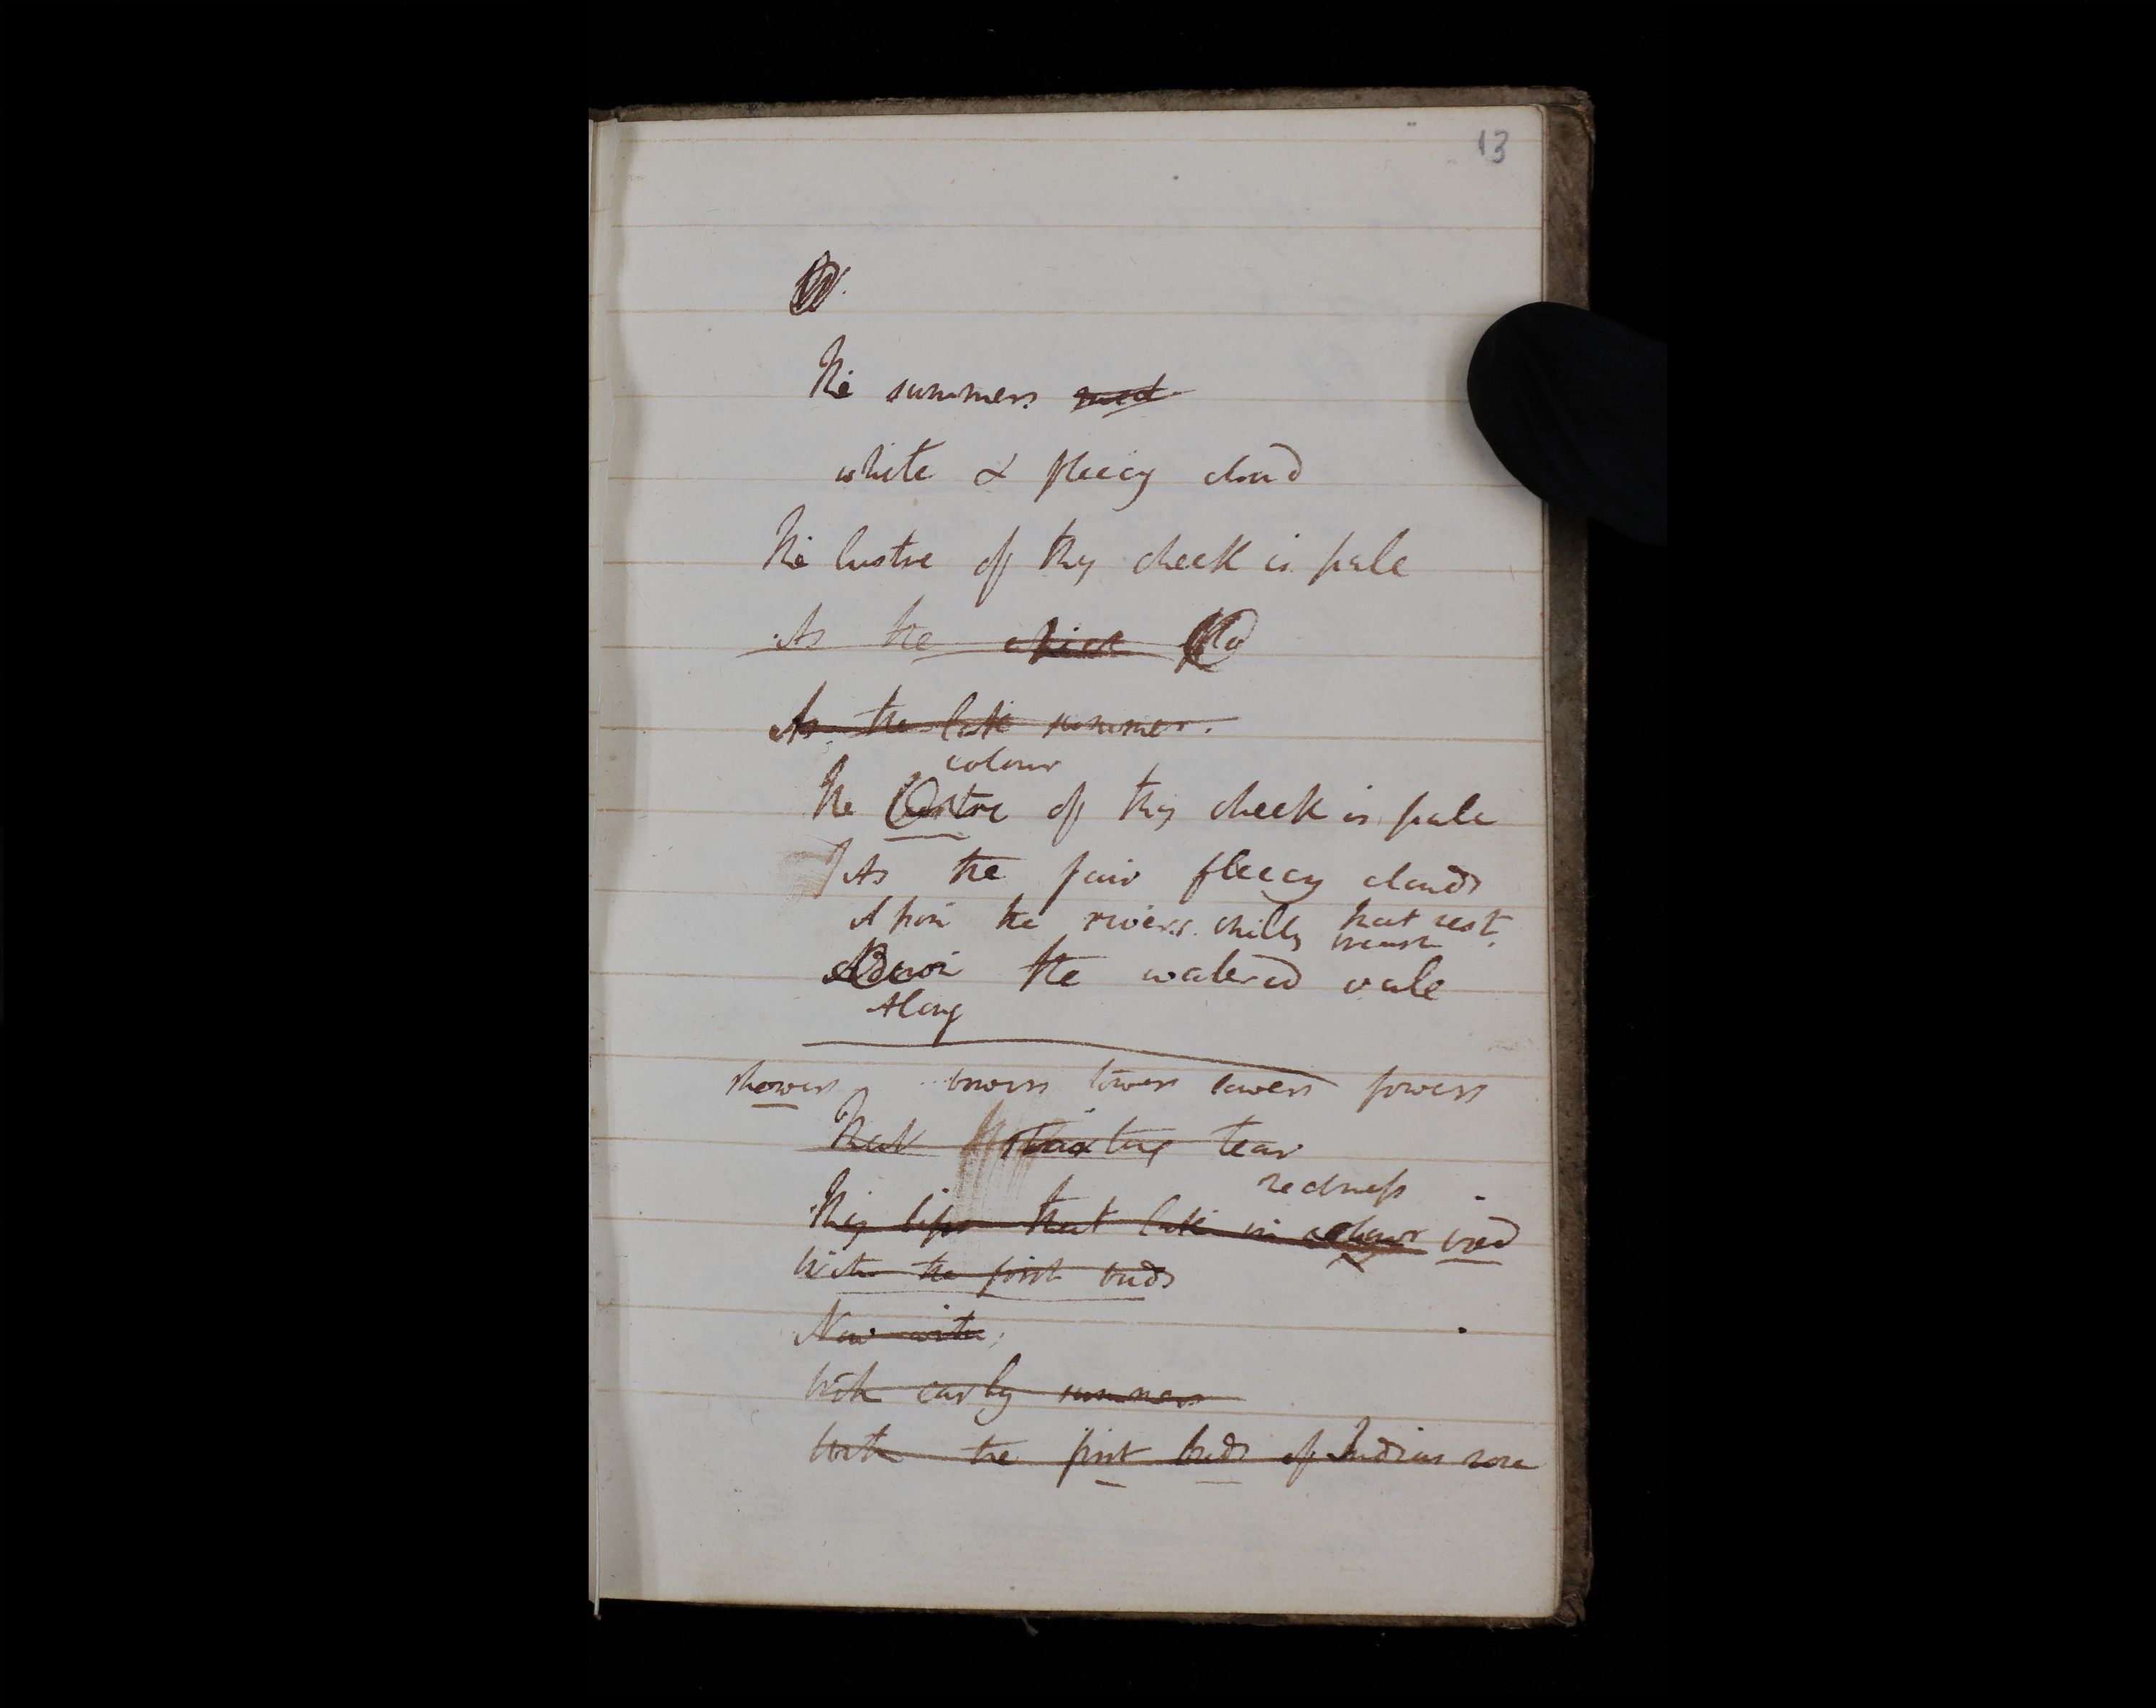 13
The summers
white & fleecy cloud
The lustre of thy cheek is pale
As the
As the late summer.
colour
The lustre of thy cheek is pale
As the fair fleecy clouds
that rest
Upon the rivers chilly breast.
Down the watered vale
Along
showers bowers towers lowers powers
That starting tear
redness
Thy lips that late in colour vied
With the first buds
Now with
With early summers
With the first buds of Indian rose